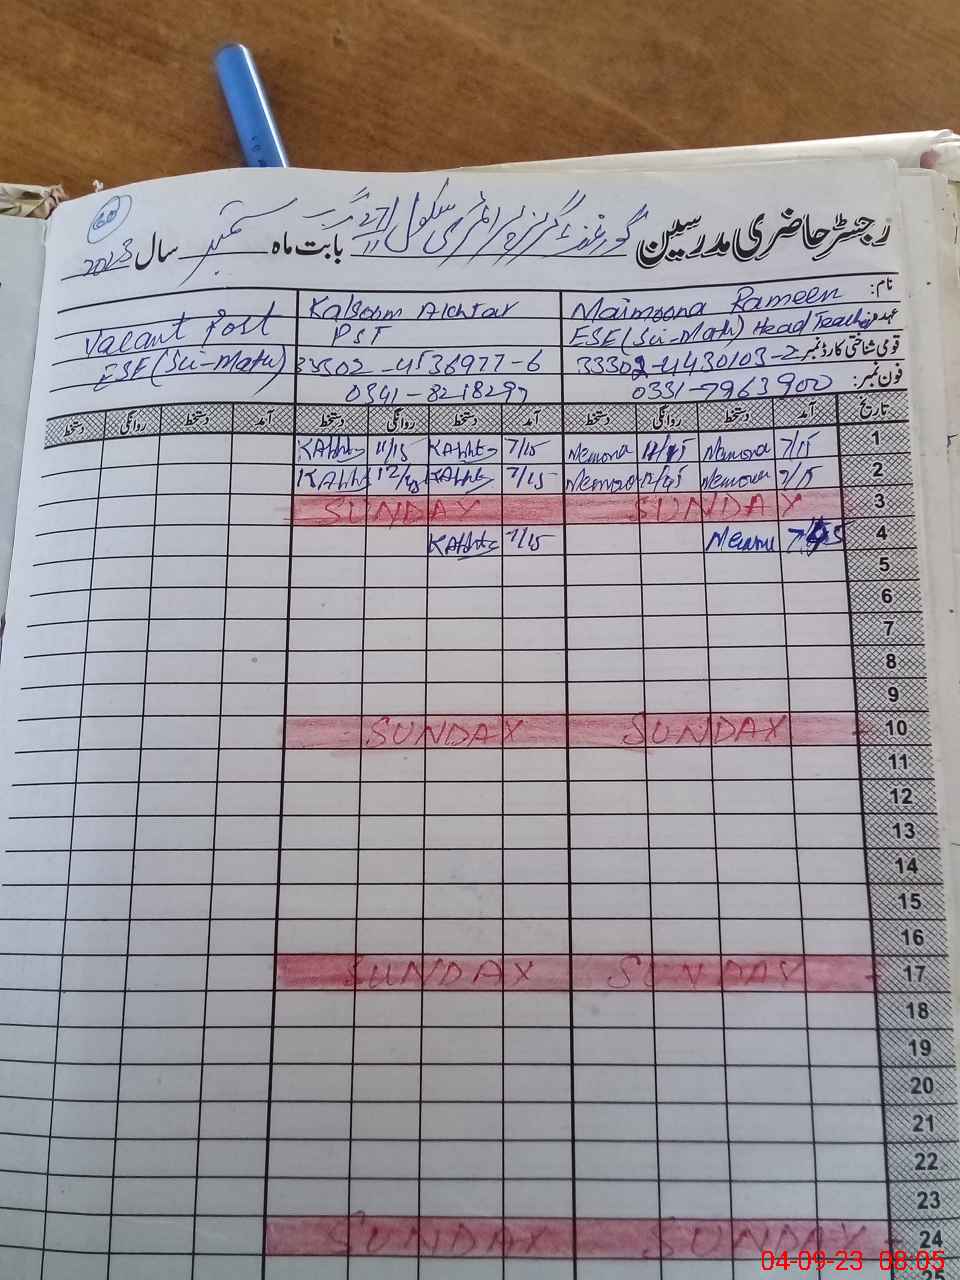 60
رجسٹر حاضری مدرسین گورنمنٹ گرلز پرائمری سکول 27 بابت ماہ ستمبر سال 2023
نام: Maimoona Rameen Kalsoom Akhtar
عہدہ: ESE (Sci-Math) Head Teacher PST Vacant Post
قومی شناختی کارڈ نمبر 33302-4430103-2 33302-4536977-6 ESE (Sci-Math)
فون نمبر: 0331-7963900 0341-8218297
تاریخ آمد دستخط روانگی دستخط آمد دستخط روانگی دستخط آمد دستخط روانگی دستخط
1 7/15 Memona Memona 7/15 KAkht KAkht
2 7/15 Memona Memona 7/15 KAkht 12/45 KAkht
3 SUNDAY SUNDAY
4 7/15 KAkht
5
6
7
8
9
10 SUNDAY SUNDAY
11
12
13
14
15
16
17 SUNDAY SUNDAY
18
19
20
21
22
23
24 SUNDAY SUNDAY
25
04-09-23 08:05